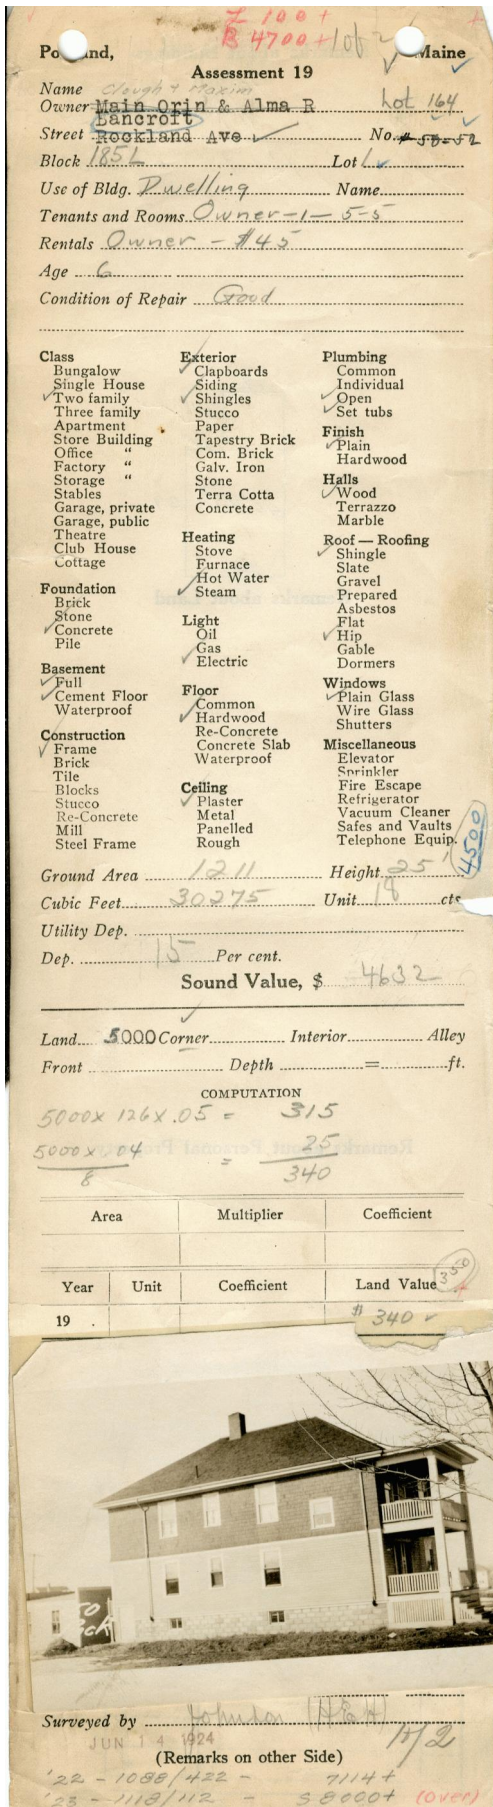 L 100 +
B 4700 + lot
Portland, Maine
Assessment 19
Name Clough & Maxim
Owner Main Orin & Alma R Lot 164
Bancroft
Street Rockland Ave No. 50-52
Block 185L Lot 1
Use of Bldg. Dwelling Name
Tenants and Rooms Owner-1-5-5
Rentals Owner - $45
Age 6
Condition of Repair Good
Class
Bungalow
Single House
Two family
Three family
Apartment
Store Building
Office "
Factory "
Storage "
Stables
Garage, private
Garage, public
Theatre
Club House
Cottage
Foundation
Brick
Stone
Concrete
Pile
Basement
Full
Cement Floor
Waterproof
Construction
Frame
Brick
Tile
Blocks
Stucco
Re-Concrete
Mill
Steel Frame
Exterior
Clapboards
Siding
Shingles
Stucco
Paper
Tapestry Brick
Com. Brick
Galv. Iron
Stone
Terra Cotta
Concrete
Heating
Stove
Furnace
Hot Water
Steam
Light
Oil
Gas
Electric
Floor
Common
Hardwood
Re-Concrete
Concrete Slab
Waterproof
Ceiling
Plaster
Metal
Panelled
Rough
Plumbing
Common
Individual
Open
Set tubs
Finish
Plain
Hardwood
Halls
Wood
Terrazzo
Marble
Roof — Roofing
Shingle
Slate
Gravel
Prepared
Asbestos
Flat
Hip
Gable
Dormers
Windows
Plain Glass
Wire Glass
Shutters
Miscellaneous
Elevator
Sprinkler
Fire Escape
Refrigerator
Vacuum Cleaner
Safes and Vaults
Telephone Equip.
4500
Ground Area 1211 Height 25'
Cubic Feet 30275 Unit 18 cts
Utility Dep.
Dep. 15 Per cent.
Sound Value, $ 4632
Land 5000 Corner Interior Alley
Front Depth = ft.
COMPUTATION
5000 x 126 x .05 = 315
5000 x .04 = 25
8 340
Area Multiplier Coefficient
Year Unit Coefficient Land Value 350
19 . $ 340
TO
Surveyed by Johnson (AEH)
JUN 14 1924
(Remarks on other Side)
'22 - 1088/422 - 7114+
'23 - 1118/112 - S 8000+ (over)